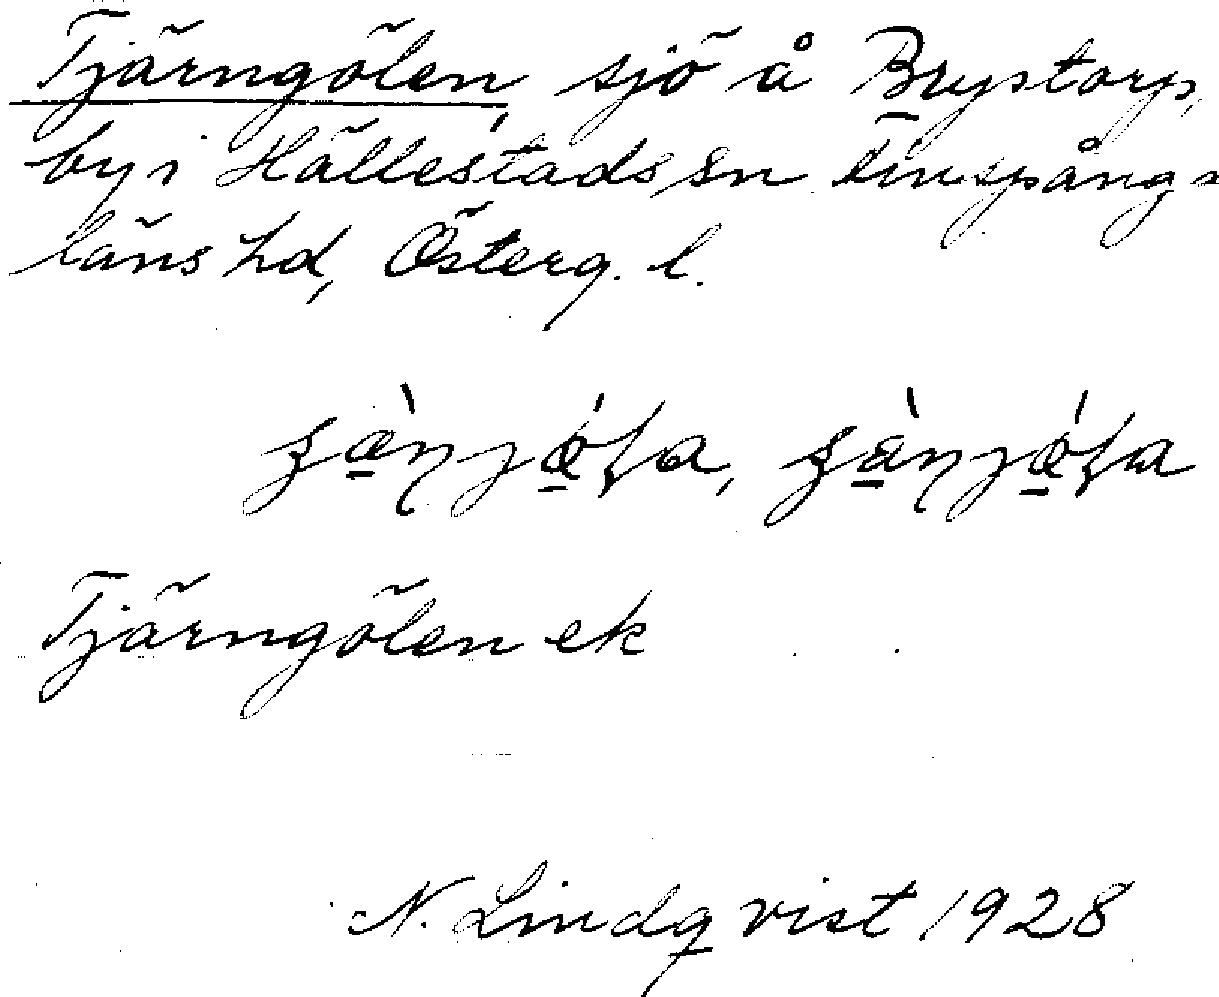 Tjärngölen, sjö å Brystorp,
by i Hällestads sn Finspånga
läns hd, Österg. l.
Tjärngölen ek
N. Lindqvist 1928